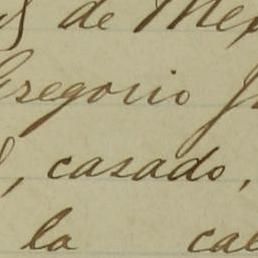 de Mex
Gregorio
, casado,
la cal